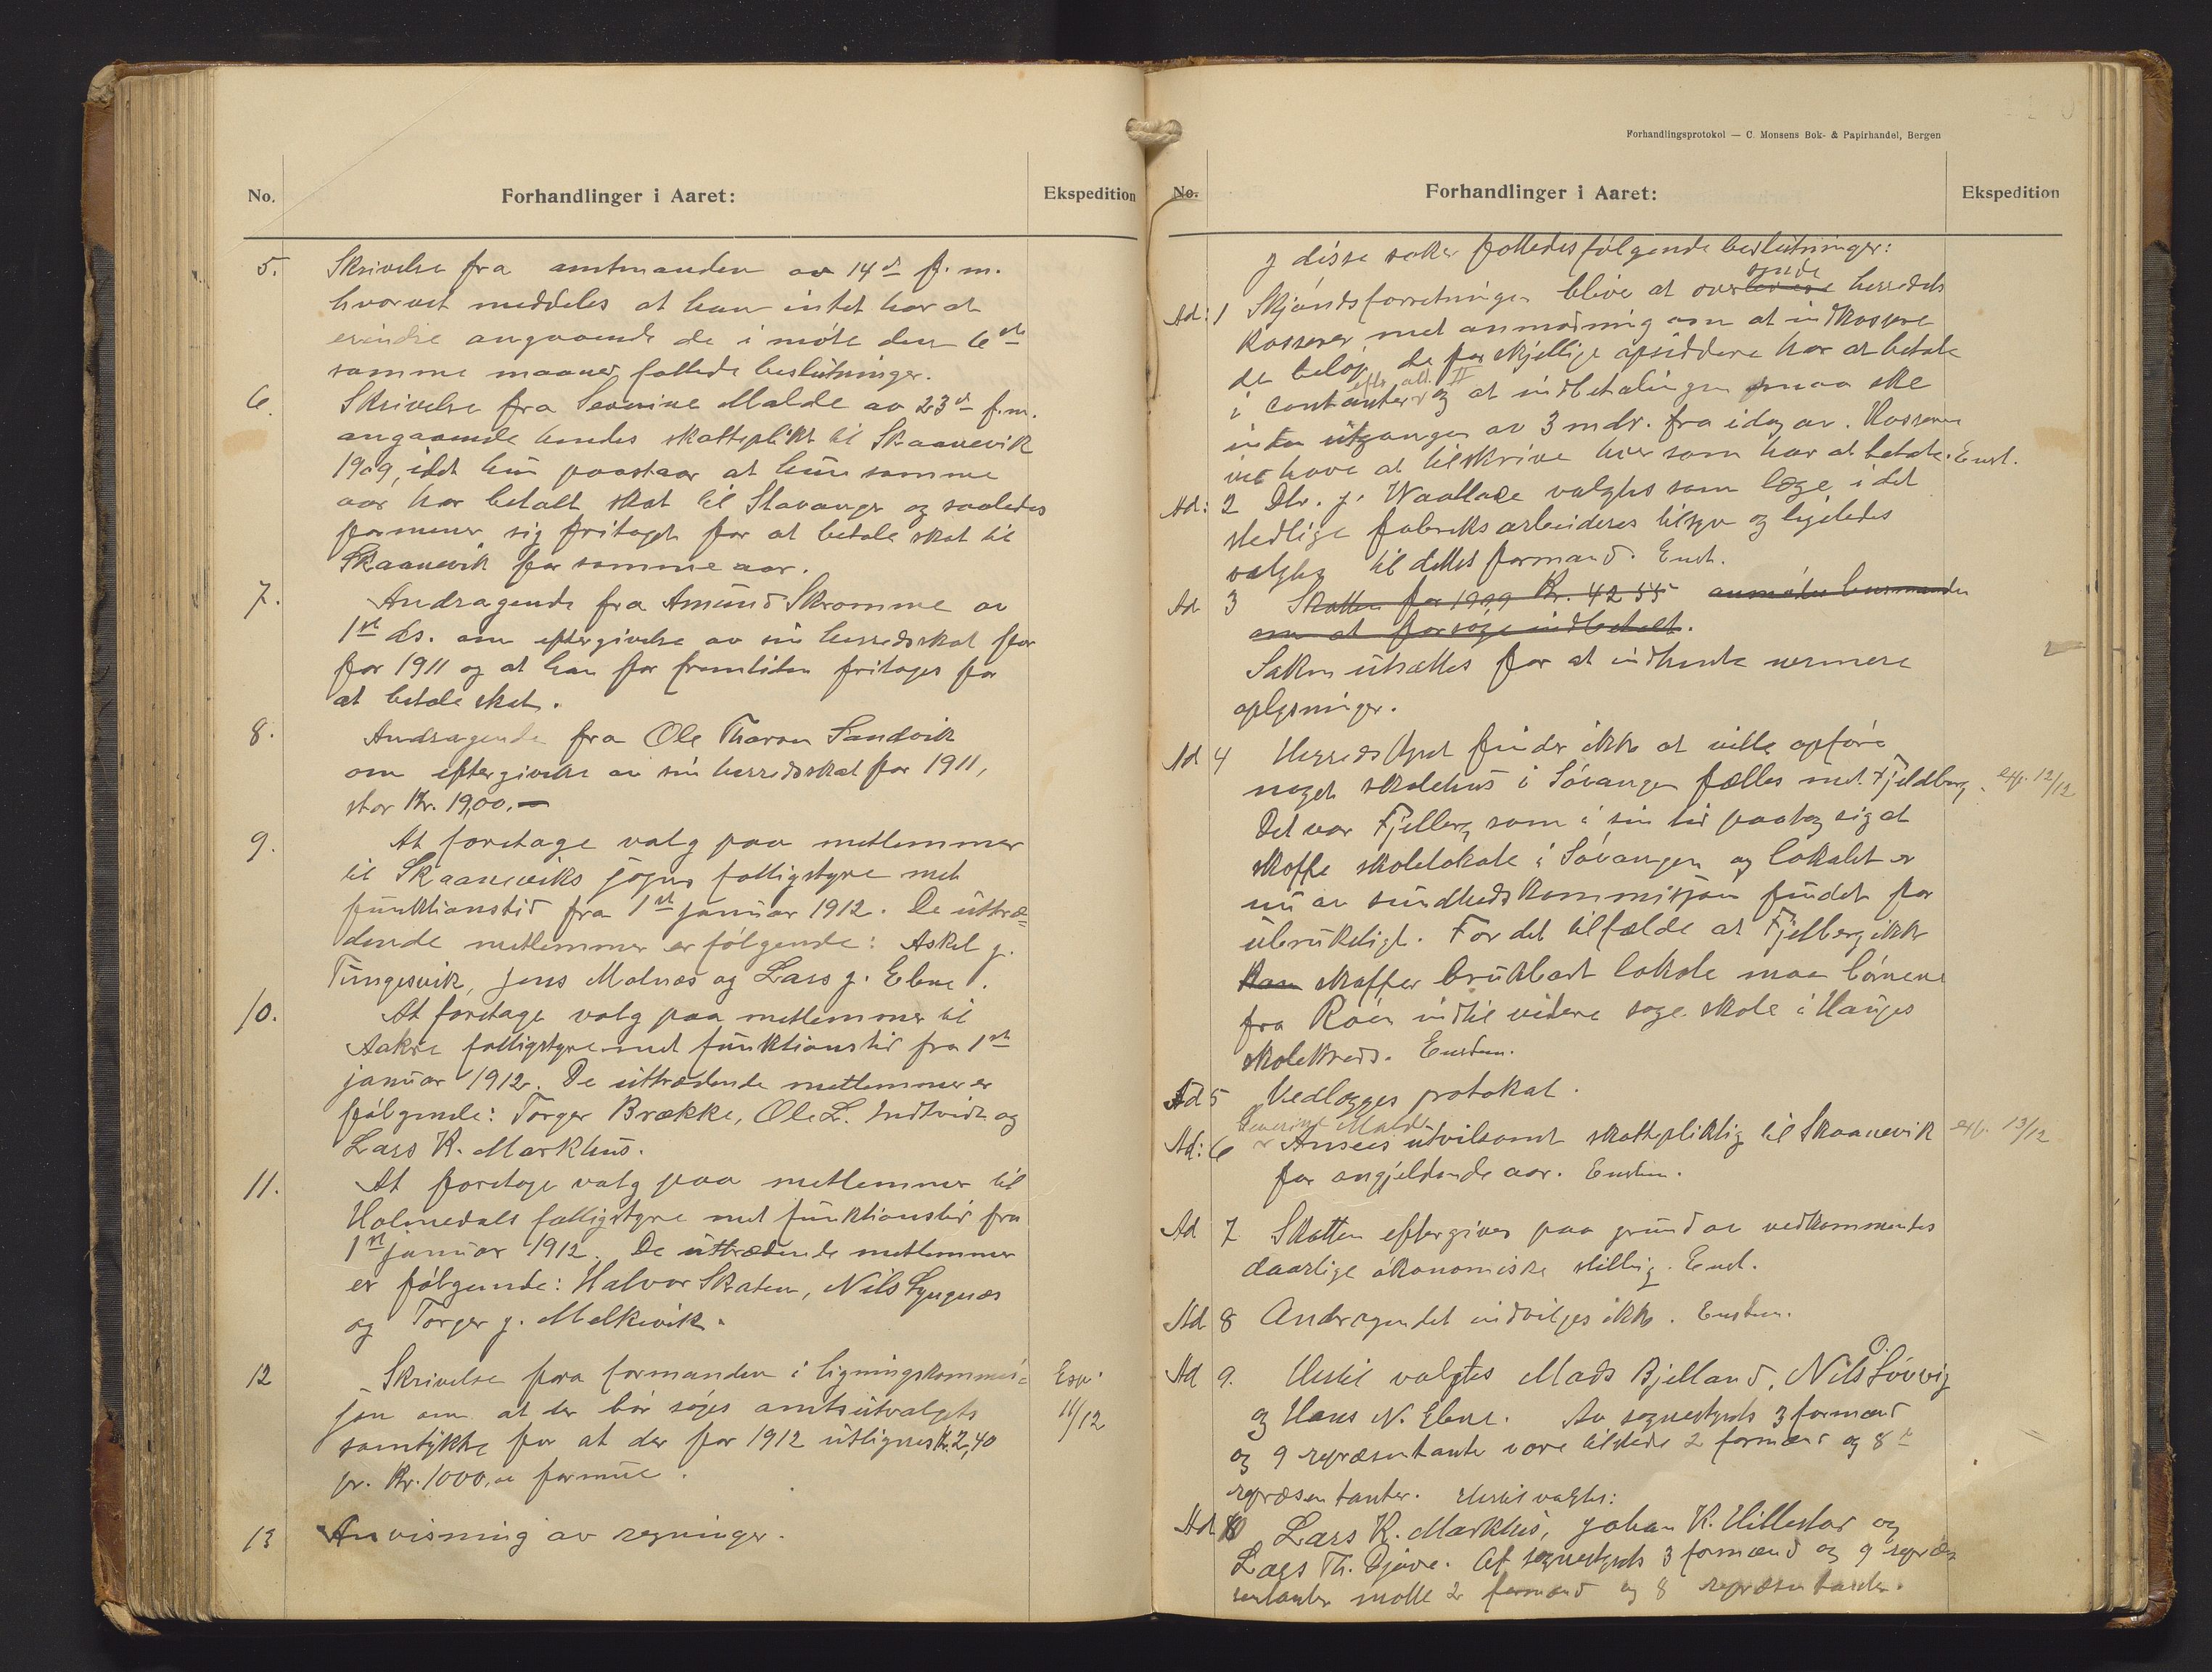 No.
Forhandlinger i Aaret:
Ekspedition
5. Skrivelse fra amtmanden av 14de f. m.
hvorvet meddeles at han intet har at
erindre angaaende de i møte den 6te
samme maaned fattede beslutninger.
6. Skrivelse fra Severine Malde av 23de f.m.
angaaende hendes skatteplikt til Skaanevik
1909, idet hun paastaar at hun samme
aar har betalt skat til Stavanger og saaledes
formener sig fritaget for at betale skat til
Skaanevik for samme aar.
7. Andragende fra Amund Skromme av
1ste ds. om eftergivelse av sin herredsskat for
for 1911 og at han for fremtiden fritages for
at betale skat.
8. Andragende fra Ole Thoren Sandvik
om eftergivelse av sin herredsskat for 1911,
stor Kr. 19,00.—
9. At foretage valg paa metlemmer
til Skaaneviks sogns fattigstyre met
funktionstid fra 1ste januar 1912. De uttræ=
dende metlemmer er følgende: Askel J.
Tungesvik, Jens Molnes og Lars J. Ebne.
10. At foretage valg paa metlemmer til
Aakre fattigstyre met funktionstid fra 1ste
januar 1912. De uttrædende metlemmer er
følgende: Torger Brække, Ole L. Indtveit og
Lars K. Markhus.
11. At foretage valg paa metlemmer til
Holmedals fattigstyre met funktionstid fra
1ste januar 1912. De uttrædende metlemmer
er følgende: Halvor Skaten, Nils Lyngnes
og Torger J. Melkevik.
12 Skrivelse fra formanden i ligningskommis=
jon om at der bør søges amtsutvalgets
samtykke for at der for 1912 utlignes Kr. 2,40
pr. Kr. 1000,00 formue.
Exp.
11/12
13 Anvisning av regninger.
Forhandlingsprotokol — C. Monsens Bok- & Papirhandel, Bergen
No.
Forhandlinger i Aaret:
Ekspedition
I disse saker fattedes følgende beslutninger:
sende
Ad: 1 Skjøndsforretningen blive at overlevere herredets
kasserer met anmodning om at indkassere
de beløp de forskjellige opsiddere har at betale
i contanter og at indbetalingen maa ske
inden utgangen av 3 mdr. fra idag av. Kasseren
vil have at tilskrive hver som har at betale. Enst.
Ad: 2 Dr. J. Waallace valgtes som læge i det
stedlige fabriksarbeideres tilsyn og ligeledes
valgtes til dettes formand. Enst.
Ad 3 Skatten for 1909 Kr. 42 55 anmodes lensmanden
om at forsøge indbetalt.
Saken utsættes for at indhente nermere
oplysninger.
Ad 4 Herredstyret finder ikke at ville opføre
noget skolehus i Søvangen fælles met Fjeldberg. exp. 12/12
Det var Fjelberg som i sin tid paatog sig at
skaffe skolelokale i Søvangen og lokalet er
nu av sundhedskommisjon fundet for
ubrukeligt. For det tilfælde at Fjelberg ikke
kan skaffer brukbart lokale maa børnene
fra Røen indtil videre søge skole i Hauges
skolekreds. Enstem.
Ad 5 Vedlægges protokol.
Severine Malde
Ad: 6 Ansees utvilsomt skattepliktig til Skaanevik exp. 13/12
for angjeldende aar. Enstem.
Ad 7 Skatten eftergives paa grund av vedkommendes
daarlige økonomiske stilling. Enst.
Ad 8 Andragendet indvilges ikke. Enstem.
Ad 9. Hertil valgtes Mads Bjelland, Nils O. Løvvig
og Hans N. Ebne. Av sognestyrets 3 formænd
og 9 repræsentanter vare tilstede 2 formænd og 8
repræsentanter. Hertil valgtes:
Ad 10 Lars K. Markhus, Johan K. Hillestad og
Lars Th. Djøve. Af sognestyrets 3 formænd og 9 repræ
sentanter møtte 2 formænd og 8 repræsentanter.